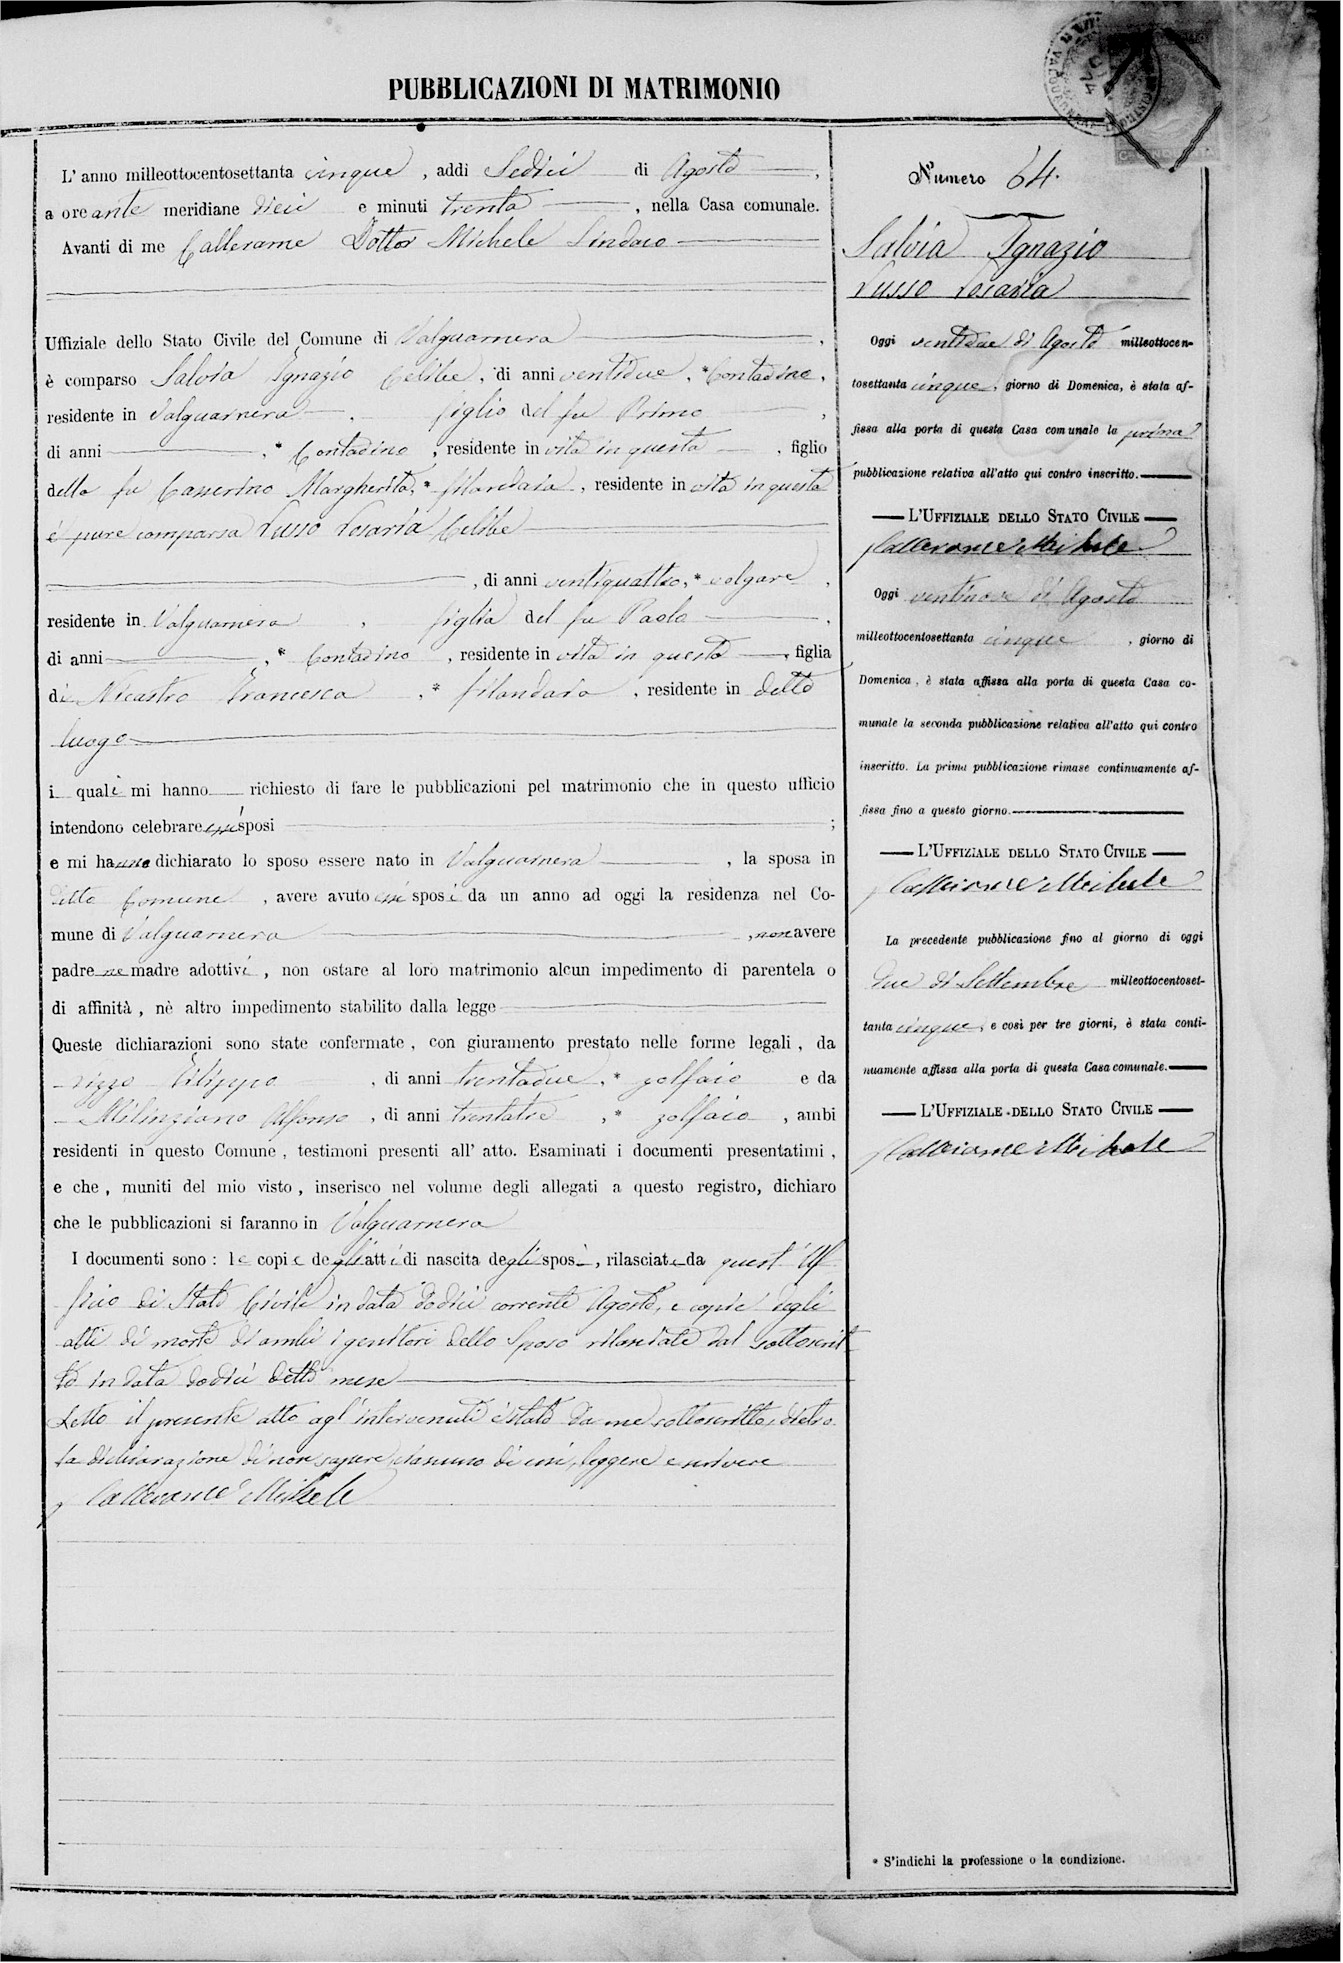 PUBBLICAZIONI DI MATRIMONIO
L' anno milleottocentosettanta cinque, addi Sedici di Agosto,
a ore ante meridiane dieci e minuti trenta, nella Casa comunale.
Avanti di me Callerame Dottor Michele Sindaco
Uffiziale dello Stato Civile del Comune di Valguarnera,
è comparso Salvia Ignazio Celibe, di anni ventidue, * Contadino,
residente in Valguarnera, figlio del fu Primo,
di anni , * Contadino, residente in vita in questa, figlio
della fu Margherita, * filandaia, residente in vita in questa
é pure comparsa Lusso Rosaria Celibe
, di anni ventiquattro, * volgare,
residente in Valguarnera, figlia del fu Paolo,
di anni , * Contadino, residente in vita in questa, figlia
di Nicastro Francesca, * filandaia, residente in detto
luogo
i quali mi hanno richiesto di fare le pubblicazioni pel matrimonio che in questo ufficio
intendono celebrare essi sposi ;
e mi hanno dichiarato lo sposo essere nato in Valguarnera, la sposa in
detto Comune, avere avuto essi sposi da un anno ad oggi la residenza nel Co-
mune di Valguarnera, non avere
padre ne madre adottivi, non ostare al loro matrimonio alcun impedimento di parentela o
di affinità, nè altro impedimento stabilito dalla legge
Queste dichiarazioni sono state confermate, con giuramento prestato nelle forme legali, da
rizzo Filippo, di anni trentadue, * zolfaio e da
Milinziano Alfonso, di anni trentatre, * zolfaio, ambi
residenti in questo Comune, testimoni presenti all' atto. Esaminati i documenti presentatimi,
e che, muniti del mio visto, inserisco nel volume degli allegati a questo registro, dichiaro
che le pubblicazioni si faranno in Valguarnera
I documenti sono: le copie degli atti di nascita degli sposi, rilasciate da quest' Uf
ficio di Stato Civile in data dodici corrente Agosto, e copie degli
atti di morte di ambi i genitori dello Sposo rilasciate dal sottoscrit
to in data dodici detto mese
Letto il presente atto agl' intervenuti è stato da me sottoscritto, dietro
la dichiarazione di non sapere, ciascuno di essi, leggere e scrivere
Callerame Michele
Numero 64.
Salvia Ignazio
Lusso Rosaria
Oggi ventidue di Agosto milleottocen-
tosettanta cinque, giorno di Domenica, è stata af-
fissa alla porta di questa Casa comunale la prima
pubblicazione relativa all'atto qui contro inscritto.
L'UFFIZIALE DELLO STATO CIVILE
Callerame Michele
Oggi ventinove di Agosto
milleottocentosettanta cinque, giorno di
Domenica, è stata affissa alla porta di questa Casa co-
munale la seconda pubblicazione relativa all'atto qui contro
inscritto. La prima pubblicazione rimase continuamente af-
fissa fino a questo giorno.
L'UFFIZIALE DELLO STATO CIVILE
Callerame Michele
La precedente pubblicazione fino al giorno di oggi
due di Settembre milleottocentoset-
tanta cinque, e così per tre giorni, è stata conti-
nuamente affissa alla porta di questa Casa comunale.
L'UFFIZIALE DELLO STATO CIVILE
Callerame Michele
* S'indichi la professione o la condizione.